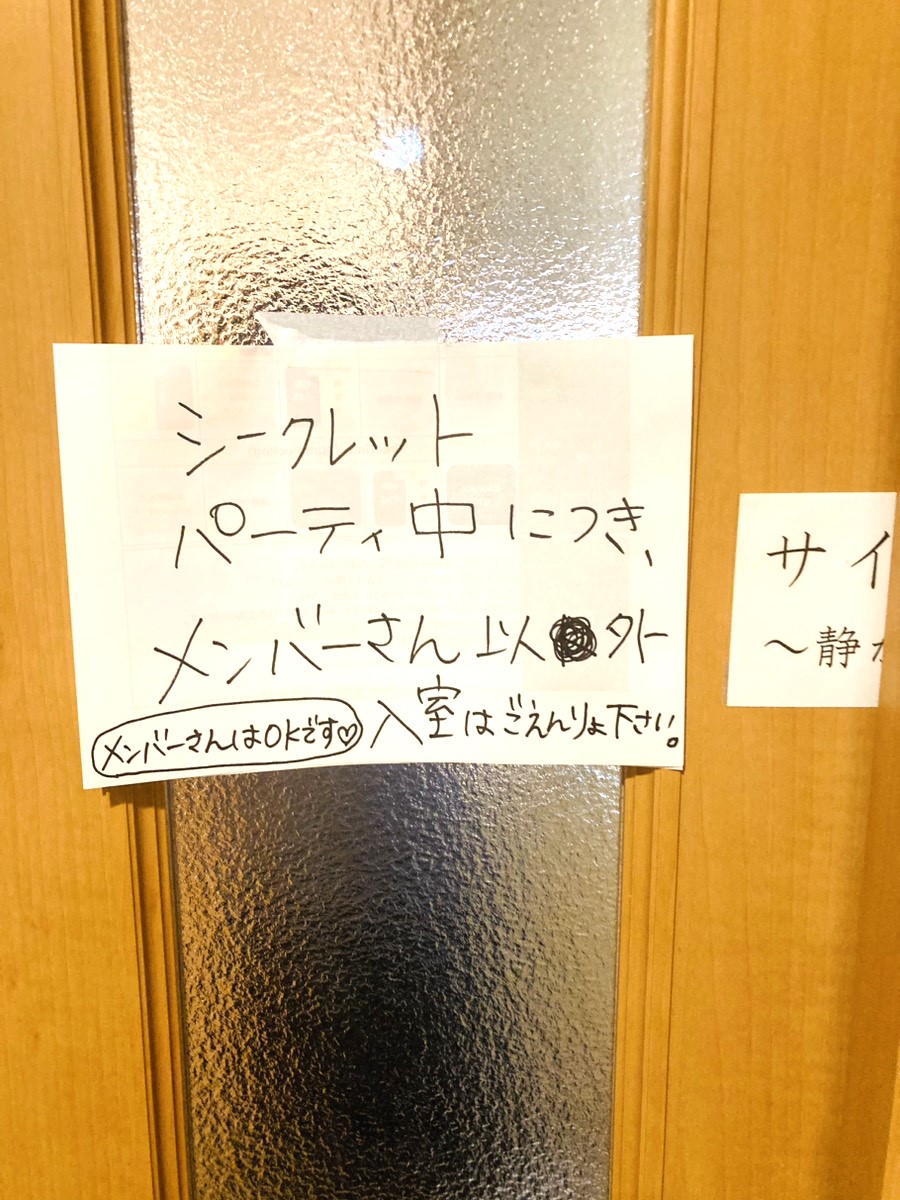 シークレット
パーティ中につき、
メンバーさん以外
入室はごえんりょ下さい。
メンバーさんはOKです♡
サイ
～静か